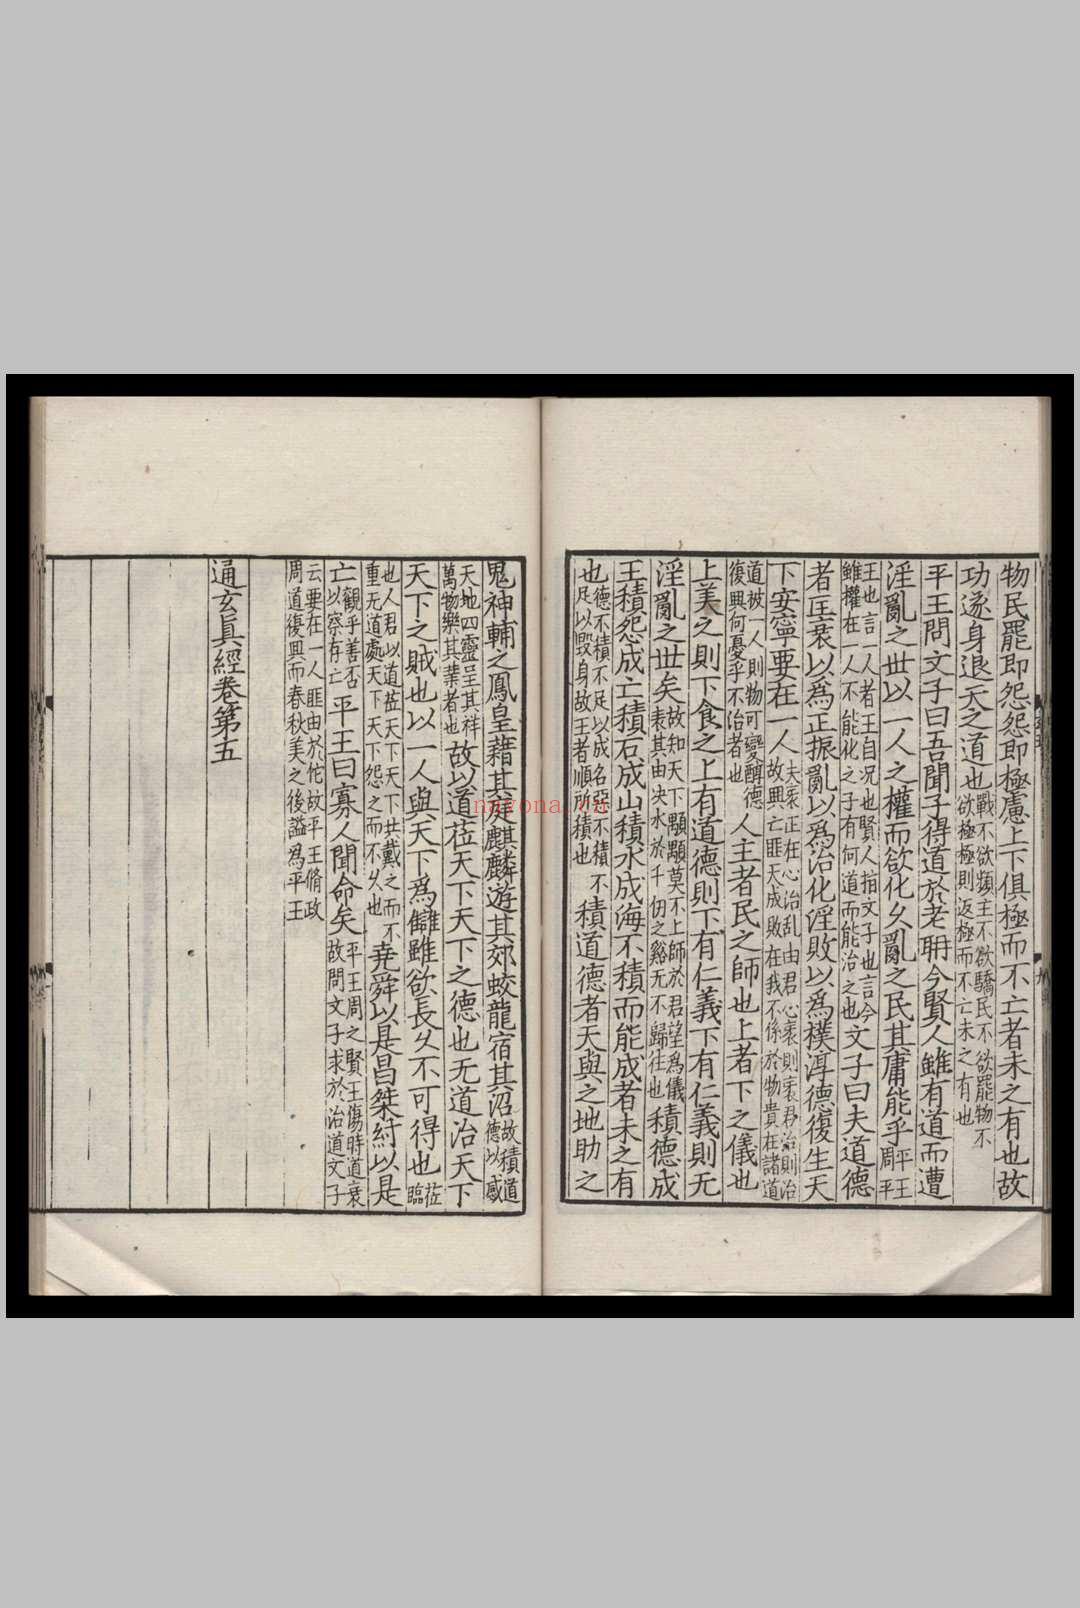 物民罷即怨怨即極慮上下俱極而不亡者未之有也故
功遂身退天之道也戰不欲頻主不欲驕民不欲罷物不
欲極極則返極而不亡未之有也
平王問文子曰吾聞子得道於老聃今賢人雖有道而遭
淫亂之世以一人之權而欲化久亂之民其庸能乎平王
周平
王也言一人者王自況也賢人指文子也言今
雖權在一人不能化之子有何道而能治之也文子曰夫道德
者匡衺以爲正振亂以爲治化淫敗以爲樸淳德復生天
下安寧要在一人夫衺正在心治乱由君心衺則衺君治則治
故興亡匪天成敗在我不係於物貴在諸道
道被一人則物可變醇德
復興何憂乎不治者也人主者民之師也上者下之儀也
上美之則下食之上有道德則下有仁義下有仁義則无
淫亂之世矣故知天下顒顒莫不上師於君望爲儀
表其由决水於千仞之谿无不歸往也積德成
王積怨成亡積石成山積水成海不積而能成者未之有
也德不積不足以成名惡不積
足以毀身故王者順所積也不積道德者天與之地助之
鬼神輔之鳳皇藉其庭麒麟遊其郊蛟龍宿其沼故積道
德以感
天地四靈呈其祥
萬物樂其業者也故以道莅天下天下之德也无道治天下
天下之賊也以一人與天下爲讎雖欲長久不可得也莅
臨
也人君以道莅天下天下共戴之而不
重无道處天下天下怨之而不久也堯舜以是昌桀紂以是
亡觀乎善否
以察存亡平王曰寡人聞命矣平王周之賢王傷時道衰
故問文子求於治道文子
云要在一人匪由於佗故平王脩政
周道復興而春秋美之後謚爲平王
通玄真經卷第五
nayona.cn